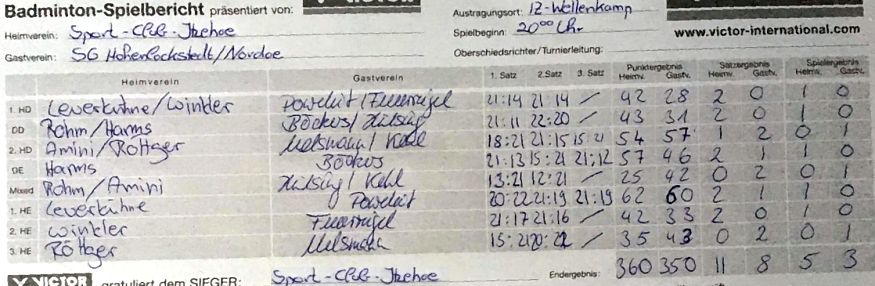 Badminton-Spielbericht präsentiert von:
Austragungsort: IZ-Wellenkamp
Heimverein: Sport-Club-Itzehoe
Spielbeginn: 20⁰⁰ Uhr
www.victor-international.com
Gastverein: SG Hohenlockstedt/Nordoe
Oberschiedsrichter/Turnierleitung:
Heimverein Gastverein 1. Satz 2. Satz 3. Satz Punktergebnis Heimv. Gastv. Satzergebnis Heimv. Gastv. Spielergebnis Heimv. Gastv.
1. HD Leverkühne/Winkler 21:14 21:14 / 42 28 2 0 1 0
DD Rohm/Harms 21:11 22:20 / 43 31 2 0 1 0
2. HD Amini/Röttger 18:21 21:15 15:21 54 57 1 2 0 1
DE Harms Böckus 21:13 15:21 21:12 57 46 2 1 1 0
Mixed Rohm/Amini 13:21 12:21 / 25 42 0 2 0 1
1. HE Leverkühne 20:22 21:19 21:19 62 60 2 1 1 0
2. HE Winkler 21:17 21:16 / 42 33 2 0 1 0
3. HE Röttger 15:21 20:22 / 35 43 0 2 0 1
VICTOR gratuliert dem SIEGER: Sport-Club-Itzehoe Endergebnis: 360 350 11 8 5 3